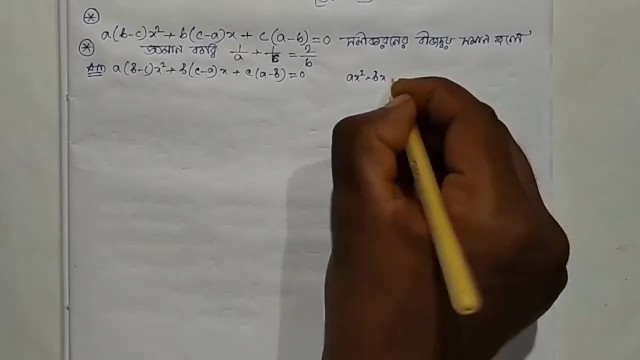 a(b-c)x² + b(c-a)x + c(a-b) = 0 সমীকরণের বীজদ্বয় সমান হলে
প্রমান করি 1/a + 1/b = 2/b
a(b-c)x² + b(c-a)x + c(a-b) = 0 ax² + bx